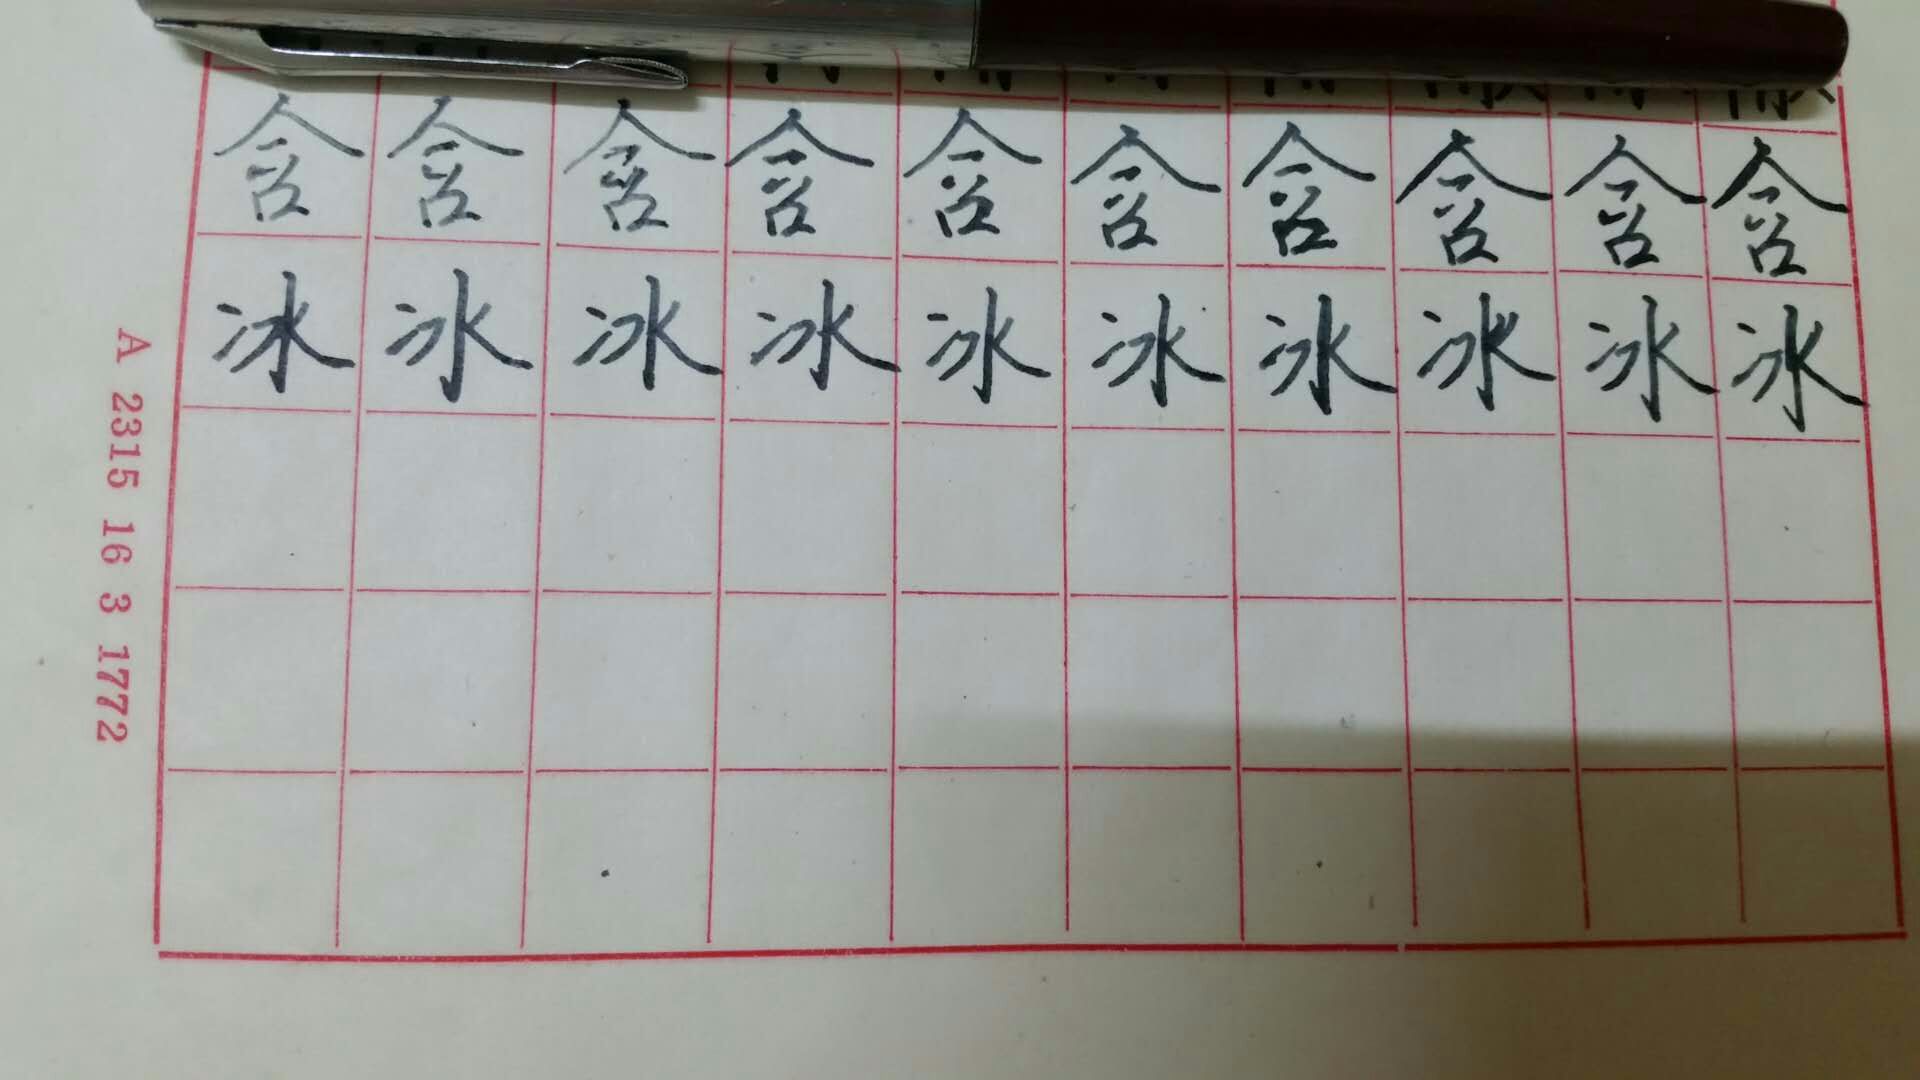 含含含含含含含含含含
冰冰冰冰冰冰冰冰冰冰
A 2315 16 3 1772